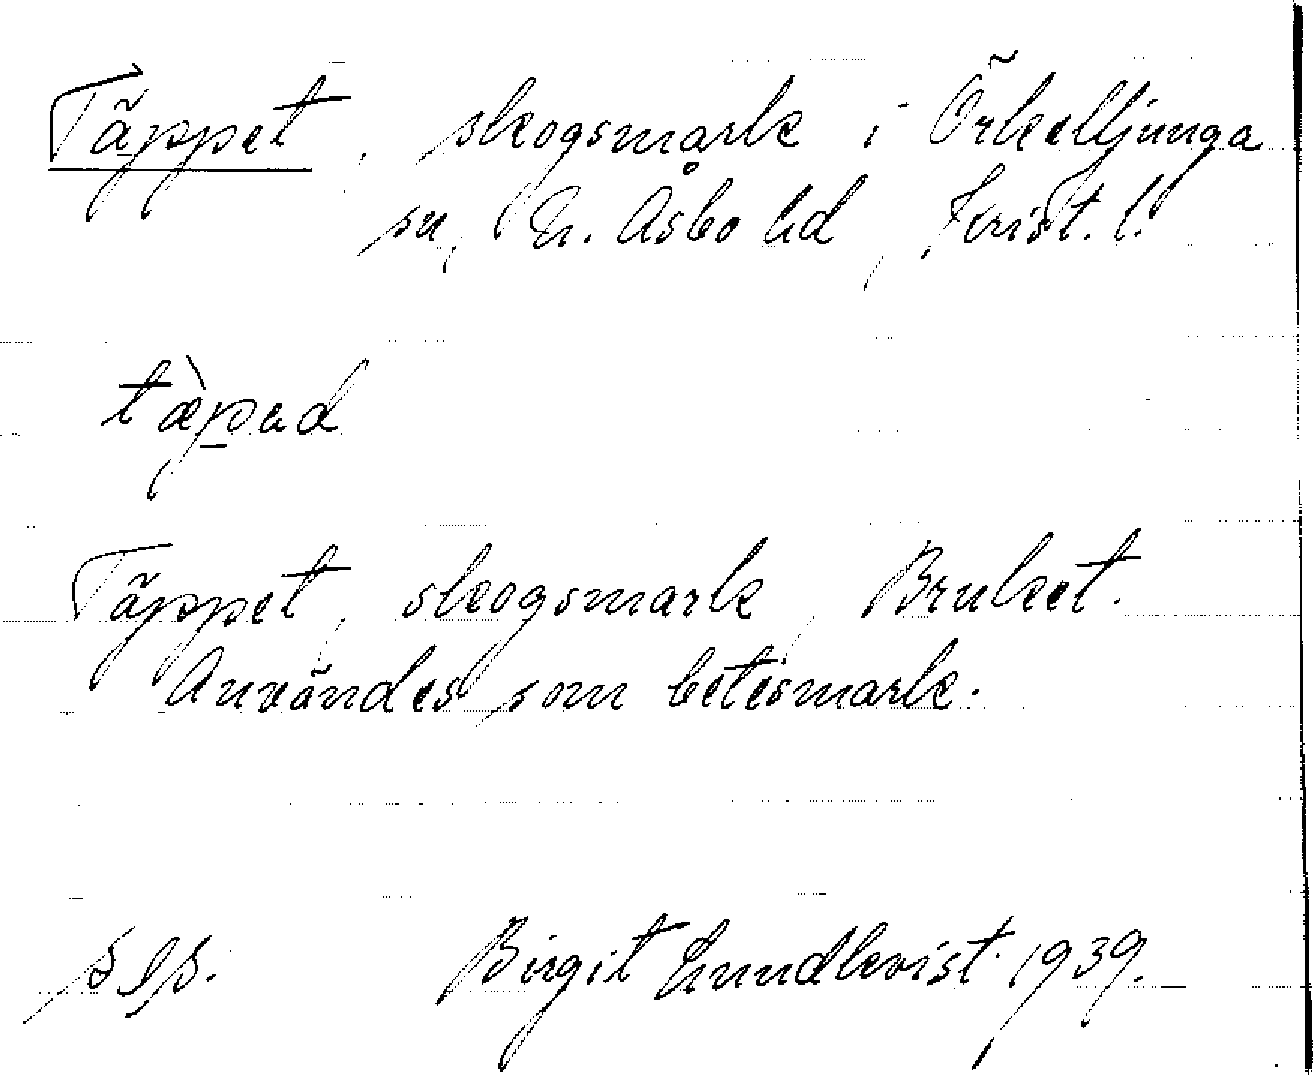 Täppet, skogsmark i Örkelljunga
sn, N. Åsbo hd, Krist. l.
tæ̀pad
Täppet, skogsmark, Bruket.
Användes som betesmark.
Birgit Lundkvist 1939.